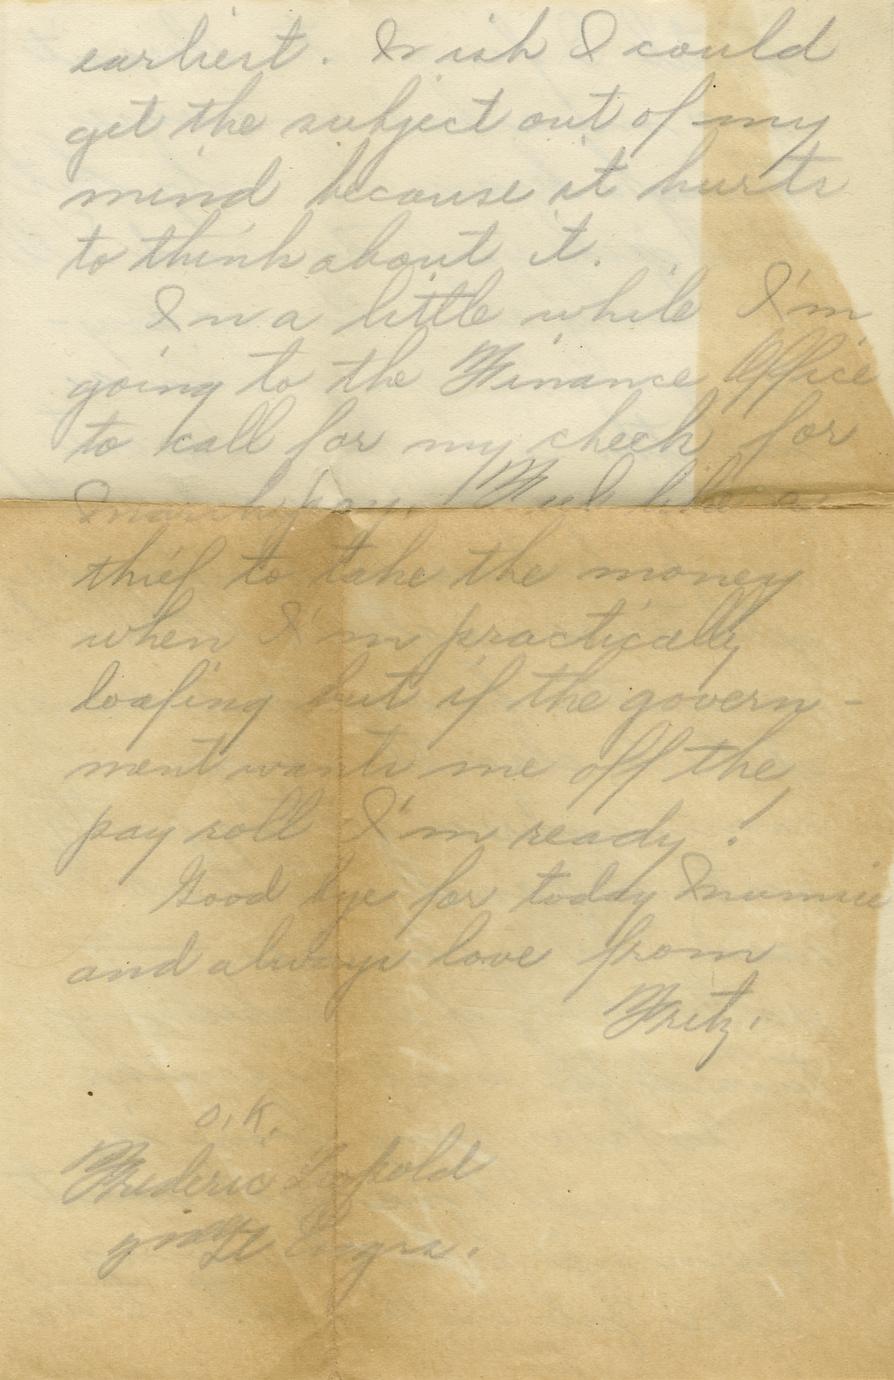 earliest. Wish I could
get the subject out of my
mind because it hurts
to think about it.
In a little while I'm
going to the Finance Office
to call for my check for
pay. Feel like a
thief to take the money
when I'm practically
loafing but if the govern-
ment wants me off the
pay roll I'm ready!
Good bye for today Mumsie
and always love from
Fritz.
O.K.
Frederic Leopold
Lt Engrs.